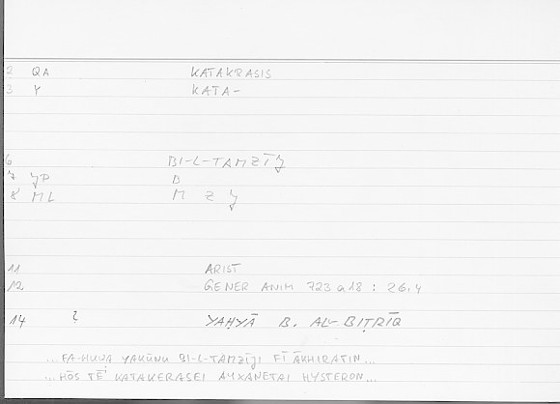 2 QA KATAKRASIS
3 Y KATA-
6 BI-L-TAMZĪJ
7 JP B
8 ML M Z J
11 ARIST
12 GENER ANIM 723 a18 : 26,4
14 ? YAḤYĀ B. AL-BIṬRĪQ
...FA-HUWA YAKŪNU BI-L-TAMZĪJI FĪ ĀKHIRATIN...
...HŌS TĒⁱ KATAKERASEI AUXANETAI HYSTERON...